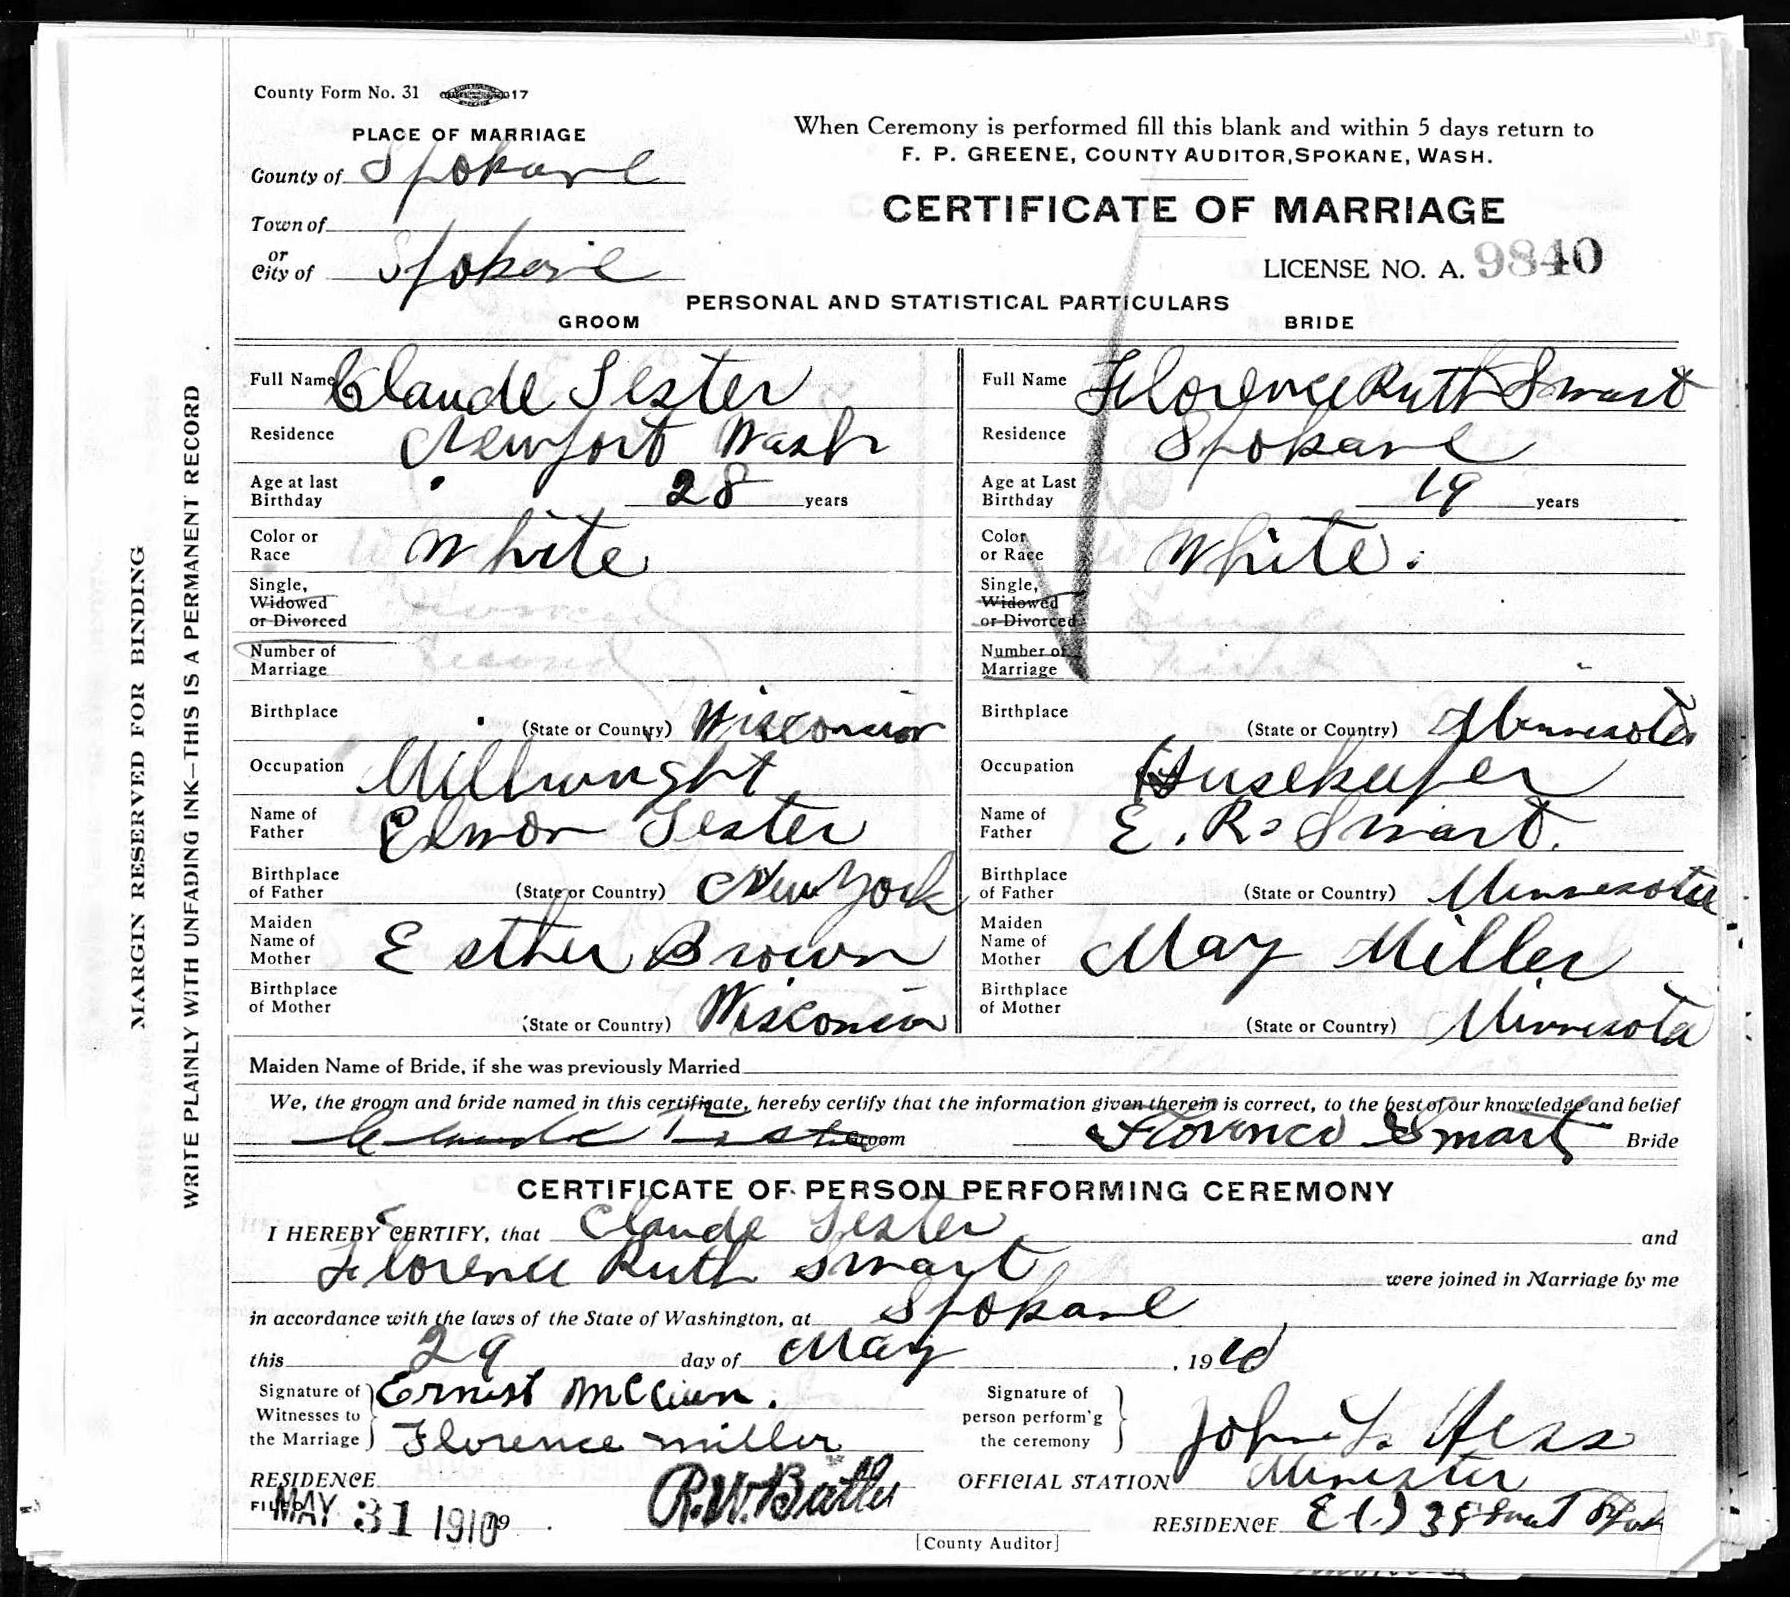 County Form No. 31 17
PLACE OF MARRIAGE
County of Spokane
Town of
or
City of Spokane
When Ceremony is performed fill this blank and within 5 days return to
F. P. GREENE, COUNTY AUDITOR, SPOKANE, WASH.
CERTIFICATE OF MARRIAGE
LICENSE NO. A. 9840
PERSONAL AND STATISTICAL PARTICULARS
GROOM
Full Name Claude Tester
Residence Newport Wash
Age at last
Birthday 28 years
Color or
Race White
Single,
Widowed
or Divorced
Number of
Marriage Second
Birthplace (State or Country) Wisconsin
Occupation Millwright
Name of
Father Elmor Tester
Birthplace
of Father (State or Country) New York
Maiden
Name of
Mother Esther Brown
Birthplace
of Mother (State or Country) Wisconsin
BRIDE
Full Name Florence Ruth Smart
Residence Spokane
Age at Last
Birthday 19 years
Color
or Race White.
Single,
Widowed
or Divorced Single
Number of
Marriage First
Birthplace (State or Country) Minnesota
Occupation Husekeeper
Name of
Father E. R. Smart.
Birthplace
of Father (State or Country) Minnesota
Maiden
Name of
Mother May Miller
Birthplace
of Mother (State or Country) Minnesota
Maiden Name of Bride, if she was previously Married
We, the groom and bride named in this certificate, hereby certify that the information given therein is correct, to the best of our knowledge and belief
Claude Tester Groom Florence Smart Bride
CERTIFICATE OF PERSON PERFORMING CEREMONY
I HEREBY CERTIFY, that Claude Tester and
Florence Ruth Smart were joined in Marriage by me
in accordance with the laws of the State of Washington, at Spokane
this 29 day of May, 1910
Signature of
Witnesses to
the Marriage
Ernest
Florence Miller
Signature of
person perform'g
the ceremony
John L. Hess
RESIDENCE
OFFICIAL STATION Minister
FILED MAY 31 1910 19
R. W. Butler
[County Auditor]
RESIDENCE
MARGIN RESERVED FOR BINDING
WRITE PLAINLY WITH UNFADING INK—THIS IS A PERMANENT RECORD